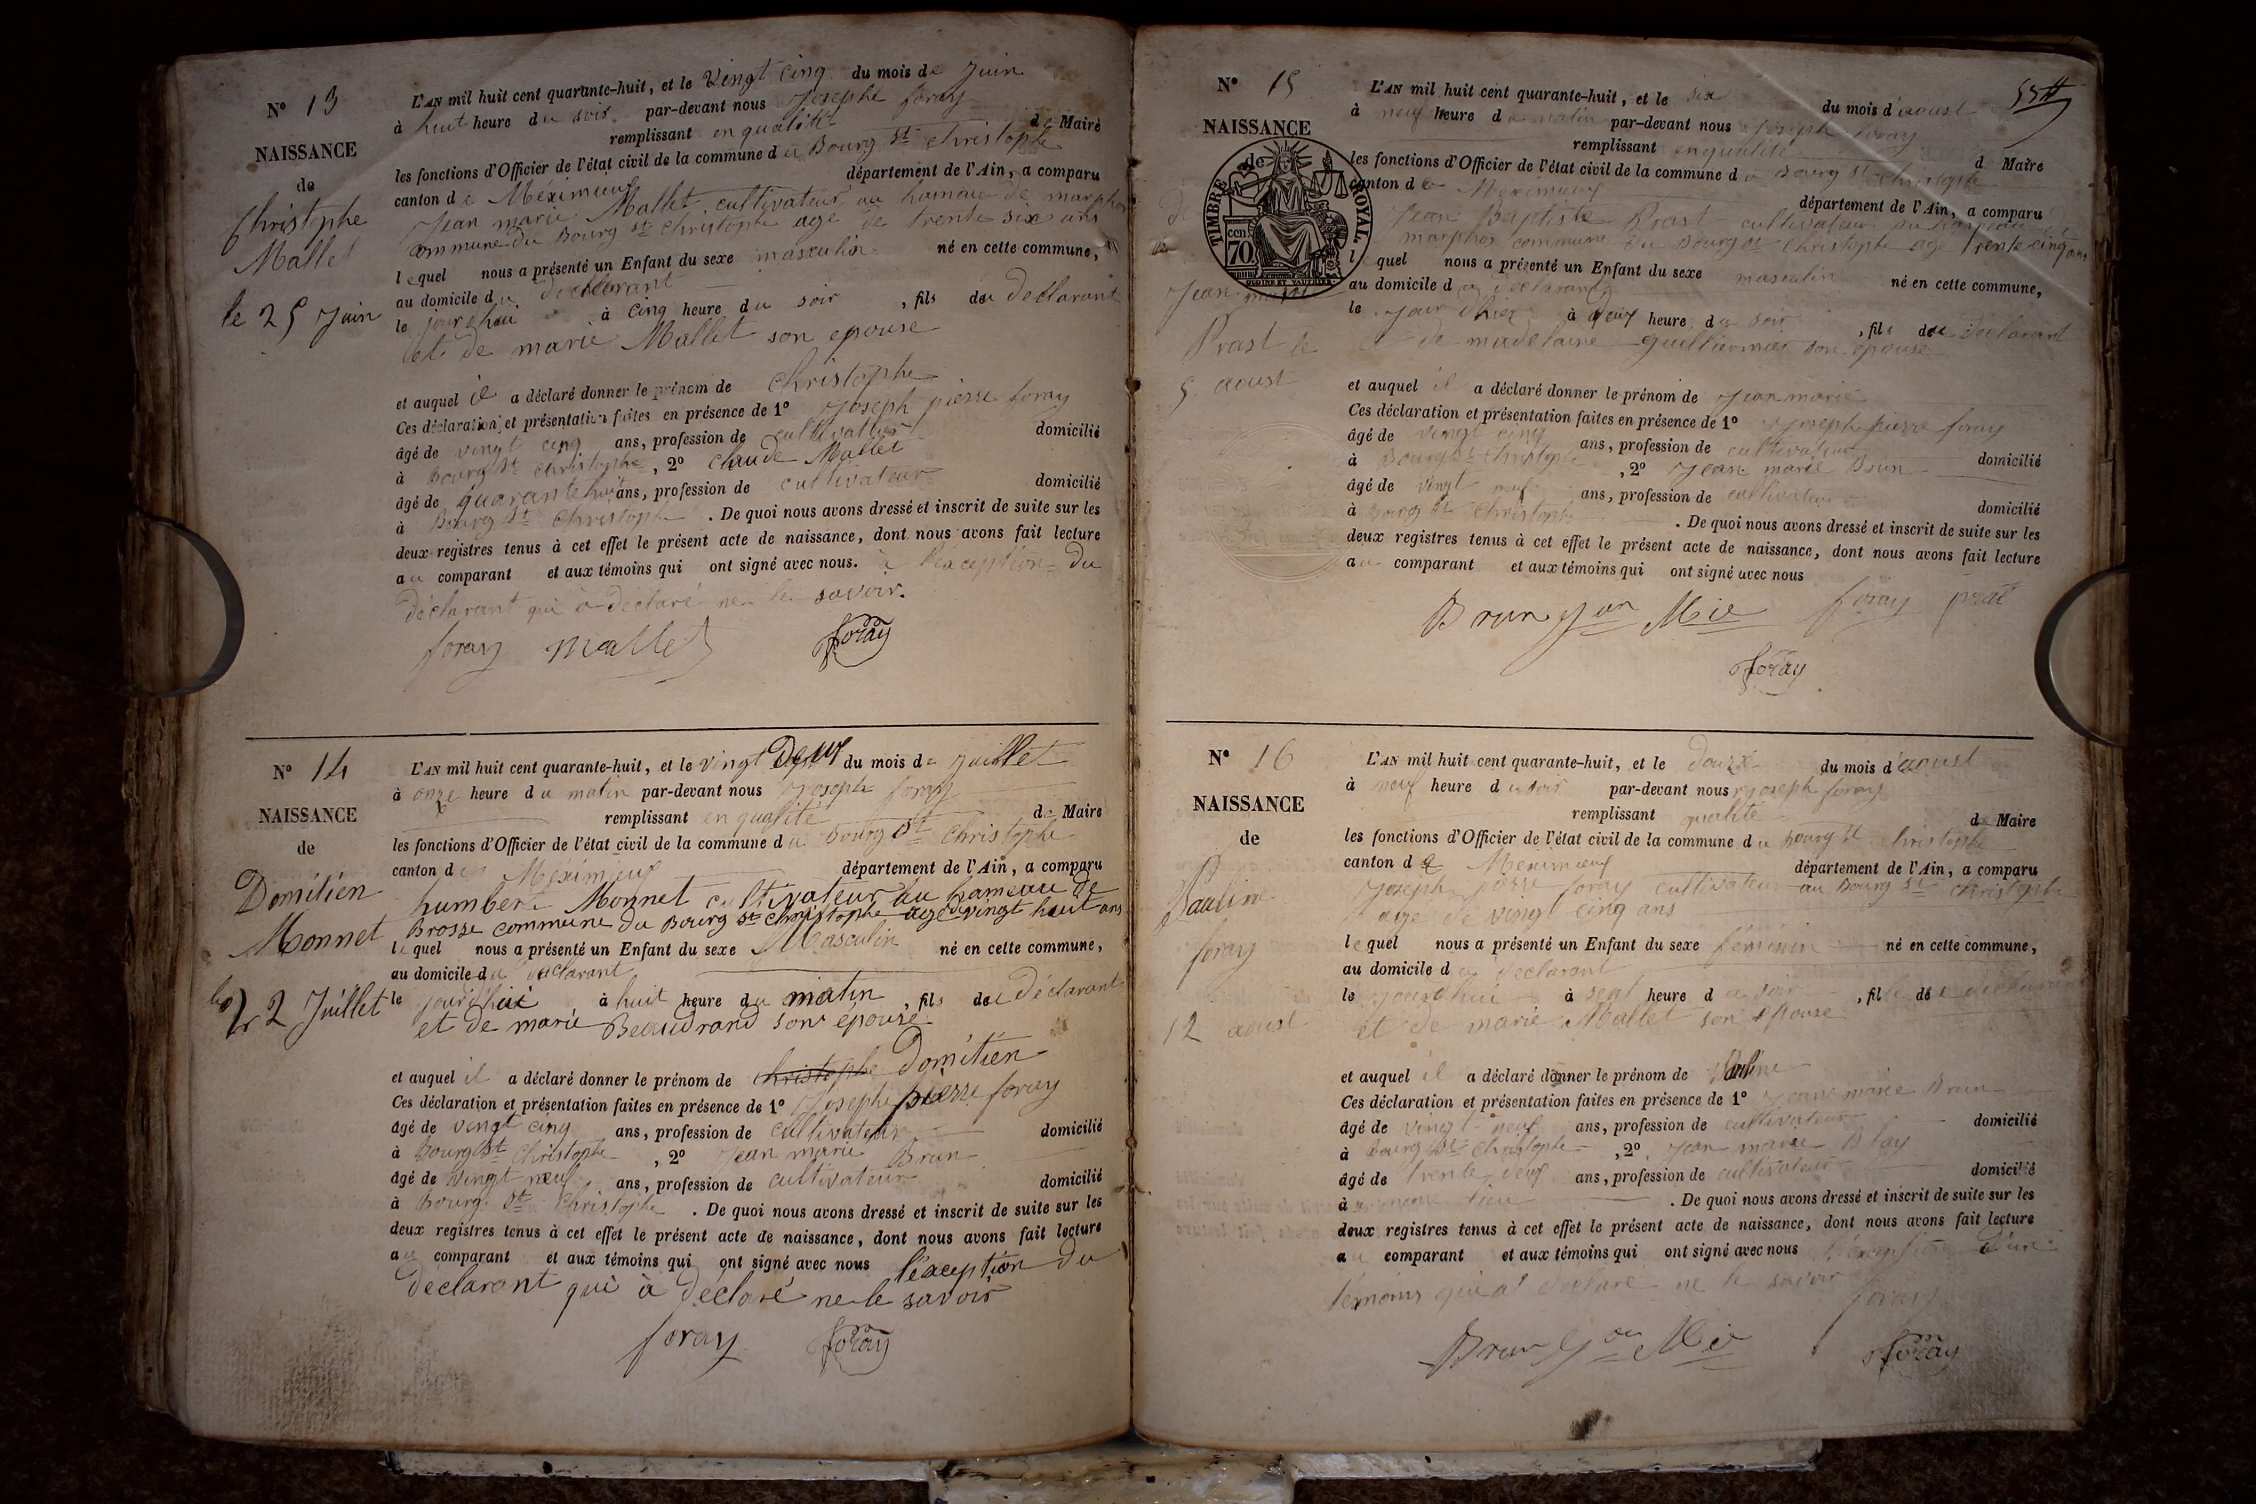 N° 13
NAISSANCE
de
Christophe
Mallet
le 25 Juin
L'AN mil huit cent quarante-huit, et le Vingt cinq du mois de Juin
à huit heure du soir par-devant nous Joseph foray
remplissant en qualité de Maire
les fonctions d'Officier de l'état civil de la commune du Bourg St Christophe
canton de Méximieux département de l'Ain, a comparu
Jean marie Mallet cultivateur au hamau de marphoz
commune du Bourg St Christophe age de trente six ans
lequel nous a présenté un Enfant du sexe masculin né en cette commune,
au domicile du declarant
le jourd'hui à cinq heure du soir, fils du declarant
et de marie Mallet son epouse
et auquel il a déclaré donner le prénom de Christophe
Ces déclaration et présentation faites en présence de 1° Joseph pierre foray
âgé de vingt cinq ans, profession de cultivateur domicilié
à Bourg St Christophe, 2° Claude Mallet
âgé de quarante huit ans, profession de cultivateur domicilié
à Bourg St Christophe. De quoi nous avons dressé et inscrit de suite sur les
deux registres tenus à cet effet le présent acte de naissance, dont nous avons fait lecture
au comparant et aux témoins qui ont signé avec nous. à l'exception du
déclarant qui à declaré ne le savoir.
foray mallet foray
N° 14
NAISSANCE
de
Domitien
Monnet
le 22 Juillet
L'AN mil huit cent quarante-huit, et le vingt Deux du mois de Juillet
à onze heure du matin par-devant nous Joseph foray
remplissant en qualité de Maire
les fonctions d'Officier de l'état civil de la commune du Bourg St Christophe
canton de Méximieux département de l'Ain, a comparu
humbert Monnet cultivateur au hameau de
Brosse commune du Bourg St Christophe agé de vingt huit ans
lequel nous a présenté un Enfant du sexe Masculin né en cette commune,
au domicile du declarant
le jourd'hui à huit heure du matin, fils du déclarant
et de marie Beaudrand son épouse
et auquel il a déclaré donner le prénom de Christophe Domitien
Ces déclaration et présentation faites en présence de 1° Joseph pierre foray
âgé de vingt cinq ans, profession de cultivateur domicilié
à Bourg St Christophe, 2° Jean marie Brun
âgé de vingt neuf ans, profession de cultivateur domicilié
à Bourg St Christophe. De quoi nous avons dressé et inscrit de suite sur les
deux registres tenus à cet effet le présent acte de naissance, dont nous avons fait lecture
au comparant et aux témoins qui ont signé avec nous l'éxception du
declarant qui à déclaré ne le savoir
foray foray
N° 15
NAISSANCE
de
TIMBRE ROYAL
cen 70
Jean marie
Prast le
5 aoust
L'AN mil huit cent quarante-huit, et le six du mois d'aoust
à neuf heure du matin par-devant nous Joseph foray
remplissant en qualité d Maire
les fonctions d'Officier de l'état civil de la commune du Bourg St Christophe
canton de Meximieux département de l'Ain, a comparu
Jean Baptiste Prast cultivateur au hameau
marphoz commune du Bourg St Christophe age trente cinq ans
lequel nous a présenté un Enfant du sexe masculin né en cette commune,
au domicile du declarant
le Jour d'hier à neuf heure du soir, fils du declarant
et de madelaine Guilliermier son épouse
et auquel il a déclaré donner le prénom de Jean marie
Ces déclaration et présentation faites en présence de 1° Joseph pierre foray
âgé de vingt cinq ans, profession de cultivateur domicilié
à Bourg St Christophe, 2° Jean marie Brun
âgé de vingt neuf ans, profession de cultivateur domicilié
à Bourg St Christophe. De quoi nous avons dressé et inscrit de suite sur les
deux registres tenus à cet effet le présent acte de naissance, dont nous avons fait lecture
au comparant et aux témoins qui ont signé avec nous
Brun Jean Mie foray prat
foray
N° 16
NAISSANCE
de
Pauline
foray
12 aoust
L'AN mil huit cent quarante-huit, et le douze du mois d'aoust
à neuf heure du soir par-devant nous Joseph foray
remplissant qualité de Maire
les fonctions d'Officier de l'état civil de la commune du Bourg St Christophe
canton de Meximieux département de l'Ain, a comparu
Joseph pierre foray cultivateur au Bourg St Christophe
age de vingt cinq ans
lequel nous a présenté un Enfant du sexe féminin né en cette commune,
au domicile du declarant
le jourd'hui à sept heure du soir, fille de declarant
et de marie Mallet son epouse
et auquel il a déclaré donner le prénom de Pauline
Ces déclaration et présentation faites en présence de 1° Jean marie Brun
âgé de vingt neuf ans, profession de cultivateur domicilié
à Bourg St Christophe, 2° Jean marie Blay
âgé de trente neuf ans, profession de cultivateur domicilié
à meme lieu. De quoi nous avons dressé et inscrit de suite sur les
deux registres tenus à cet effet le présent acte de naissance, dont nous avons fait lecture
au comparant et aux témoins qui ont signé avec nous l'éxception d'un
témoins qui a declaré ne le savoir foray
Brun Jean Mie foray